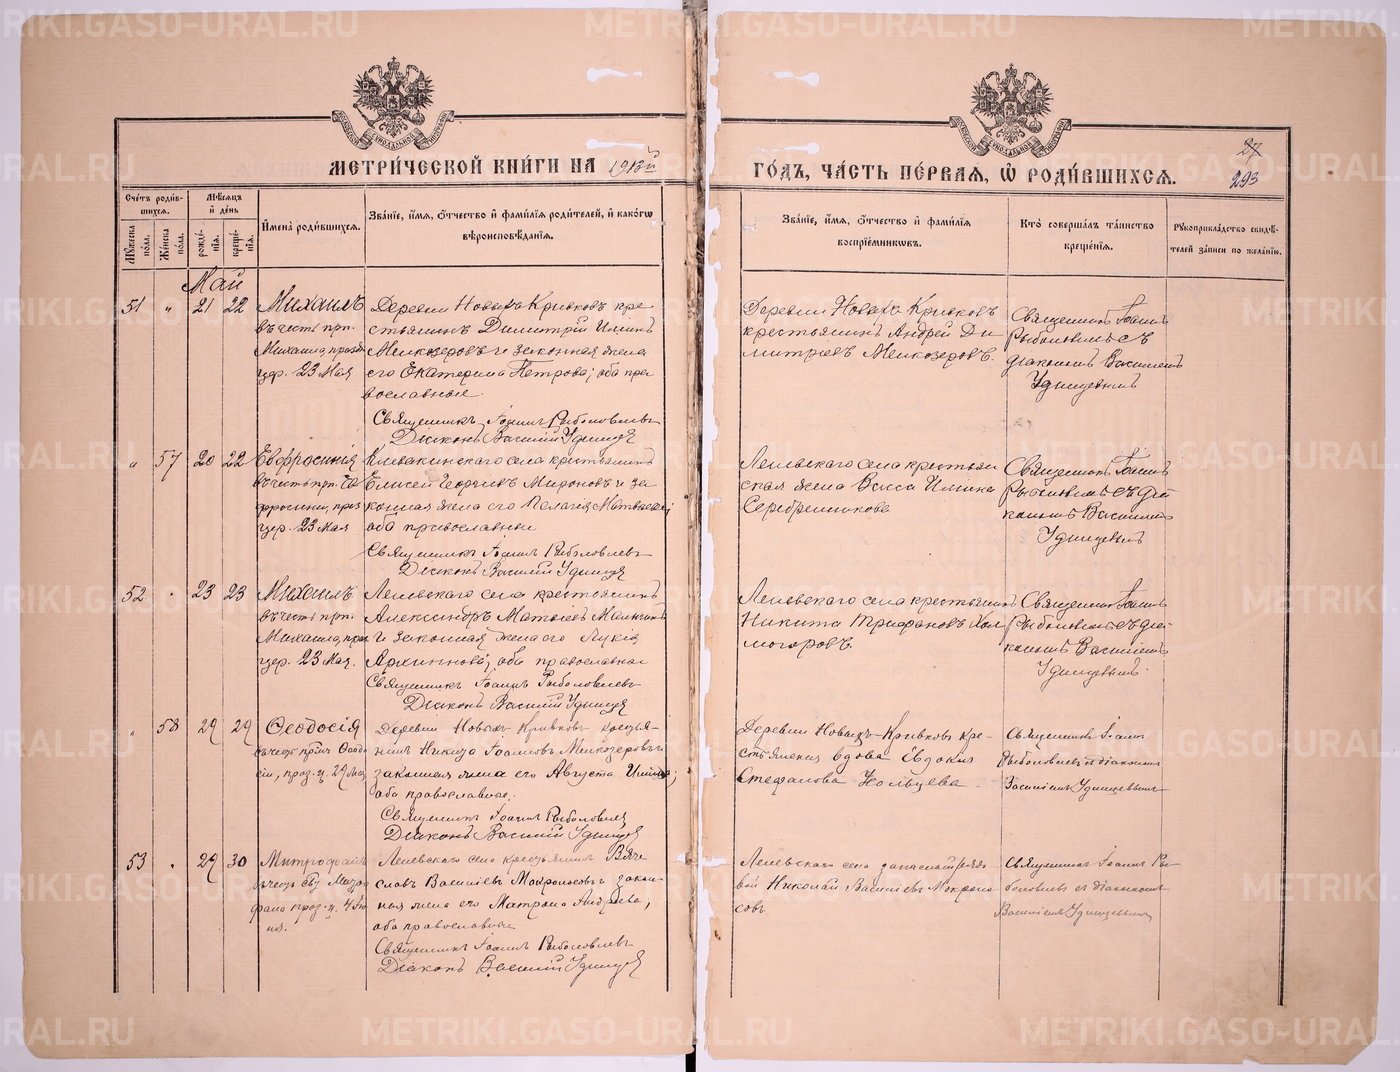 МЕТРИ́ЧЕСКОЙ КНИ́ГИ НА 1913й
ГО́ДЪ, ЧА́СТЬ ПЕ́РВАЯ, Ѡ҆ РОДИ́ВШИХСЯ.
27
293
Сче́тъ роди́вшихся.
Мѣ́сяцъ и҆ де́нь
Мꙋ́жеска по́ла.
Же́нска по́ла.
рожде́нїя.
креще́нїя.
И҆мена̀ роди́вшихся.
Зва́нїе, и҆́мя, ѻ҆́тчество и҆ фами́лїя роди́телей, и҆ како́гѡ
вѣроисповѣ́данїя.
Зва́нїе, и҆́мя, ѻ҆́тчество и҆ фами́лїя
воспрїе́мникѡвъ.
Кто̀ соверша́лъ та́инство
креще́нїя.
Рꙋкоприкла́дство свидѣ́телей за́писи по жела́нїю.
Май
51 " 21 22
Михаилъ
въ честь прп.
Михаила, празд.
цер. 23 Мая
Деревни Новыхъ Кривковъ кре-
стьянинъ Димитрій Ильинъ
Мелкозеровъ и законная жена
его Екатерина Петрова; оба пра-
вославные.
Священникъ Іоаннъ Рыболовлевъ
Діаконъ Василій Удинцевъ
Деревни Новыхъ Кривковъ
крестьянинъ Андрей Ди-
митріевъ Мелкозеровъ.
Священникъ Іоаннъ
Рыболовлевъ съ
діакономъ Василіемъ
Удинцевымъ
" 57 20 22
Евфросинія
въ честь прп. Ев-
фросиніи, праз.
цер. 23 Мая
Клевакинскаго села крестьянинъ
Елисей Георгіевъ Мироновъ и за-
конная жена его Пелагія Матвеева;
оба православные
Священникъ Іоаннъ Рыболовлевъ
Діаконъ Василій Удинцевъ
Леневскаго села крестьян-
ская жена Васса Ильина
Серебренникова
Священникъ Іоаннъ
Рыболовлевъ съ діа-
кономъ Василіемъ
Удинцевымъ
52 " 23 23
Михаилъ
въ честь прп.
Михаила, праз.
цер. 23 Мая.
Леневскаго села крестьянинъ
Александръ Матвіевъ
и законная жена его Лукія
Архипнова; оба православные
Священникъ Іоаннъ Рыболовлевъ
Діаконъ Василій Удинцевъ
Леневскаго села крестьянинъ
Никита Трифановъ Хол-
могоровъ.
Священникъ Іоаннъ
Рыболовлевъ съ діа-
кономъ Василіемъ
Удинцевымъ.
" 58 29 29
Ѳеодосія
въ честь Ѳеодо-
сіи, праз. ц. 29 Мая
Деревни Новыхъ Кривковъ кресть-
нинъ Никита Іоанновъ Мелкозеровъ и
законная жена его Августа Ильина;
оба православные.
Священникъ Іоаннъ Рыболовлевъ
Діаконъ Василій Удинцевъ
Деревни Новыхъ-Кривковъ кре-
стьянская вдова Евдокія
Стефанова Кольцева
Священникъ Іоаннъ
Рыболовлевъ съ діакономъ
Василіемъ Удинцевымъ
53 " 29 30
Митрофанъ
въ честь св. Митро-
фана праз. ц. 4 Iю-
ня.
Леневскаго села крестьянинъ Вяче-
славъ Василіевъ Мокроносовъ закон-
ная жена его Матрона Андреева;
оба православные
Священникъ Іоаннъ Рыболовлевъ
Діаконъ Василій Удинцевъ
Леневскаго села запасный рядо-
вой Николай Василіевъ Мокроно-
совъ
Священникъ Іоаннъ Ры-
боловлевъ съ діакономъ
Василіемъ Удинцевымъ
METRIKI.GASO-URAL.RU